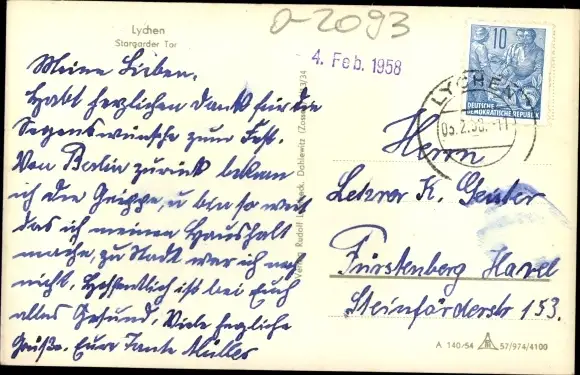 Lychen
Stargarder Tor
0-2093
4. Feb. 1958
10
DEUTSCHE
DEMOKRATISCHE REPUBLIK
LYCHEN
03.2.58.-11
Meine Lieben,
Habt herzlichen Dank für die
Segenswünsche zum Fest.
Von Berlin zurück bekam
ich die Grippe, u bin so weit
das ich meinen Haushalt
mache, zu Stadt war ich noch
nicht. Hoffentlich ist bei Euch
alles Gesund. Viele herzliche
Grüße. Eure Tante Müller
Verlag Rudolf Dahlewitz (Zossen) 3/34
Herrn
Lehrer K. Geuter
Fürstenberg Havel
Steinförderstr 153.
A 140/54 57/974/4100